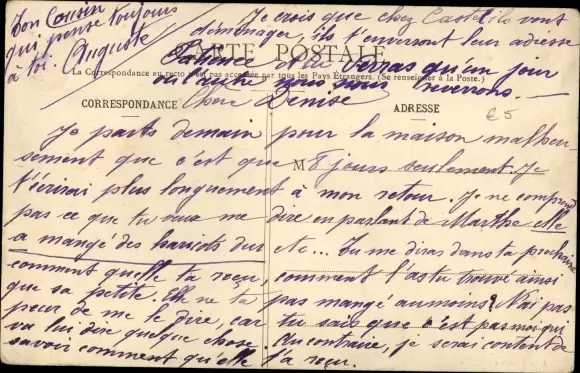 Ton Cousin
qui pense toujours
à toi. Auguste
Je crois que chez Castelilo vont
déménager, ils t'enverront leur adresse
CARTE POSTALE
Patience et tu verras qu'un jour
La Correspondance au recto n'est pas acceptée par tous les Pays Étrangers. (Se renseigner à la Poste.)
ou l'autre nous nous reverrons —
CORRESPONDANCE
Chère Denise
ADRESSE
€5
Je parts demain pour la maison malheu
sement que c'est que 8 jours seulement. Je
M
t'écrirai plus longuement à mon retour. Je ne comprend
pas ce que tu veux me dire en parlant de Marthe elle
a mangé des haricots dur etc... Tu me diras dans ta prochaine
comment quelle ta reçu, comment l'as tu trouvé ainsi
que sa petite. Elle ne ta pas mangé au moins? N'ai pas
peur de me le dire, car tu sais que c'est pas moi qui
va lui dire quelque chose. Au contraire, je serai content de
savoir comment qu'elle t'a reçu.